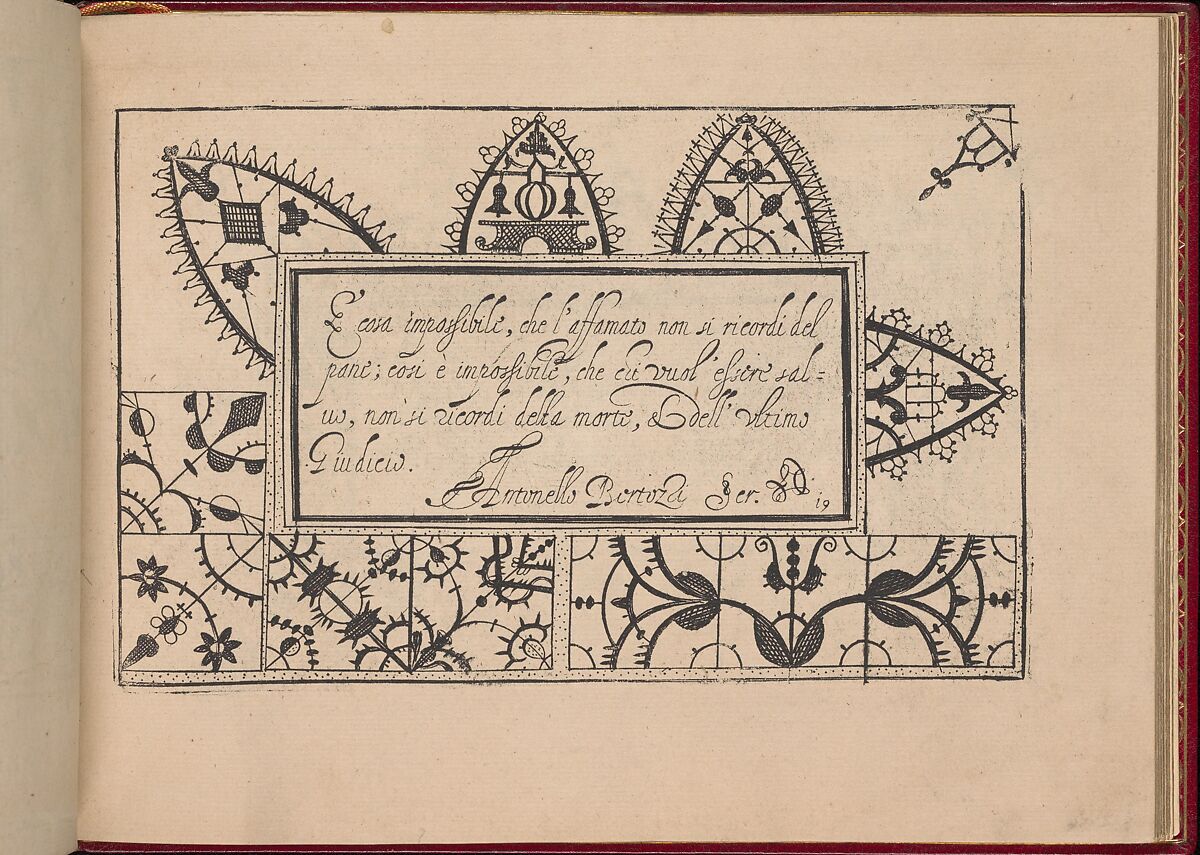 E cosa impossibile, che l'affamato non si ricordi del
pane; cosi è impossibile, che chi vuol' essere sal=
uo, non si ricordi della morte, & dell' vltimo
Giudicio.
Antonello Bertozzi Scr. 19